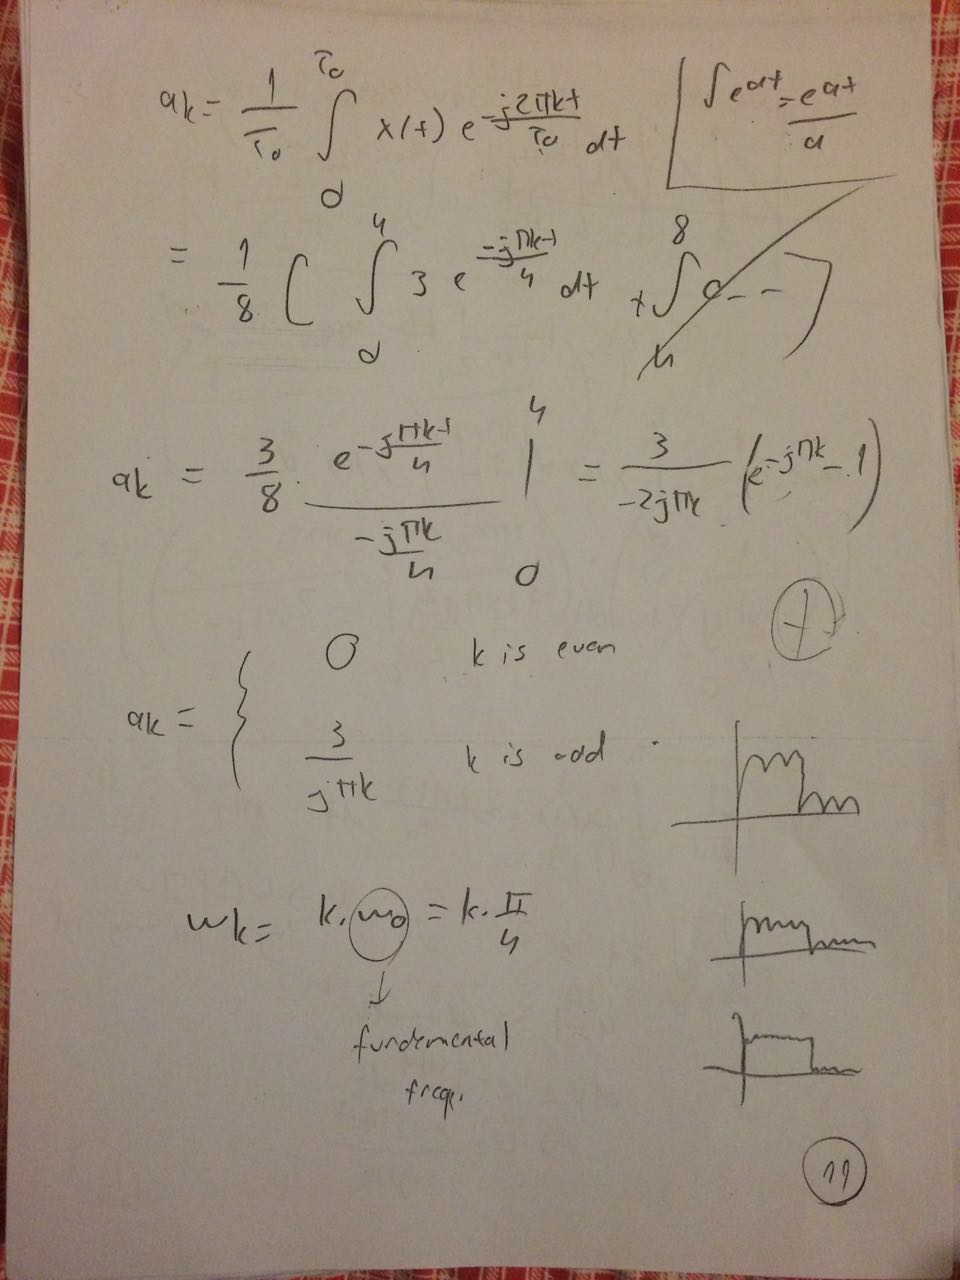 ak = 1/T₀ ∫₀^T₀ x(t) e^(-j2πkt/T₀) dt
∫e^at = e^at/a
= 1/8 [ ∫₀^4 3 e^(-jπkt/4) dt + ∫₄^8 0 -- ]
ak = 3/8 · e^(-jπkt/4) / (-jπk/4) |₀^4 = 3/(-2jπk) (e^(-jπk) - 1)
+
ak = { 0 k is even
3/(jπk) k is odd
wk = k.w₀ = k.π/4
↓
fundemental
freq.
11